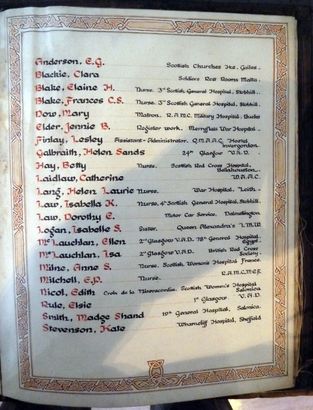 Anderson, E.G. Scottish Churches Hut, Gailes.
Blackie, Clara Soldiers Rest Rooms Malta.
Blake, Elaine H. Nurse. 3rd Scottish General Hospital, Stobhill.
Blake, Frances C.S. Nurse. 3rd Scottish General Hospital, Stobhill.
Dow, Mary Matron. R.A.M.C. Military Hospital,
Elder, Jennie B. Register Work. Merryflats War Hospital.
Finlay, Lesley Assistant-Administrator. Q.M.A.A.C. Hostel
Invergordon.
Galbraith, Helen Sands 24th Glasgow V.A.D.
Hay, Betty Nurse. Scottish Red Cross Hospital,
Bellahouston.
Laidlaw, Catherine W.A.A.C.
Lang, Helen Laurie Nurse. War Hospital, Leith.
Law, Isabella K. Nurse, 4th Scottish General Hospital, Stobhill.
Law, Dorothy E. Motor Car Service. Dalmellington.
Logan, Isabelle S. Sister. Queen Alexandra's
McLauchlan, Ellen 2nd Glasgow V.A.D. 78th General Hospital
Egypt.
McLauchlan, Isa 2nd Glasgow V.A.D. British Red Cross
Society.
Milne, Anne S. Nurse. Scottish Women's Hospital France.
Mitchell, E.P. Nurse. R.A.M.C.
Nicol, Edith Croix de la Scottish Women's Hospital
Salonica
Rule, Elsie 1st Glasgow V.A.D.
Smith, Madge Shand 19th General Hospital, Salonica.
Stevenson, Kate Wharncliff Hospital, Sheffield